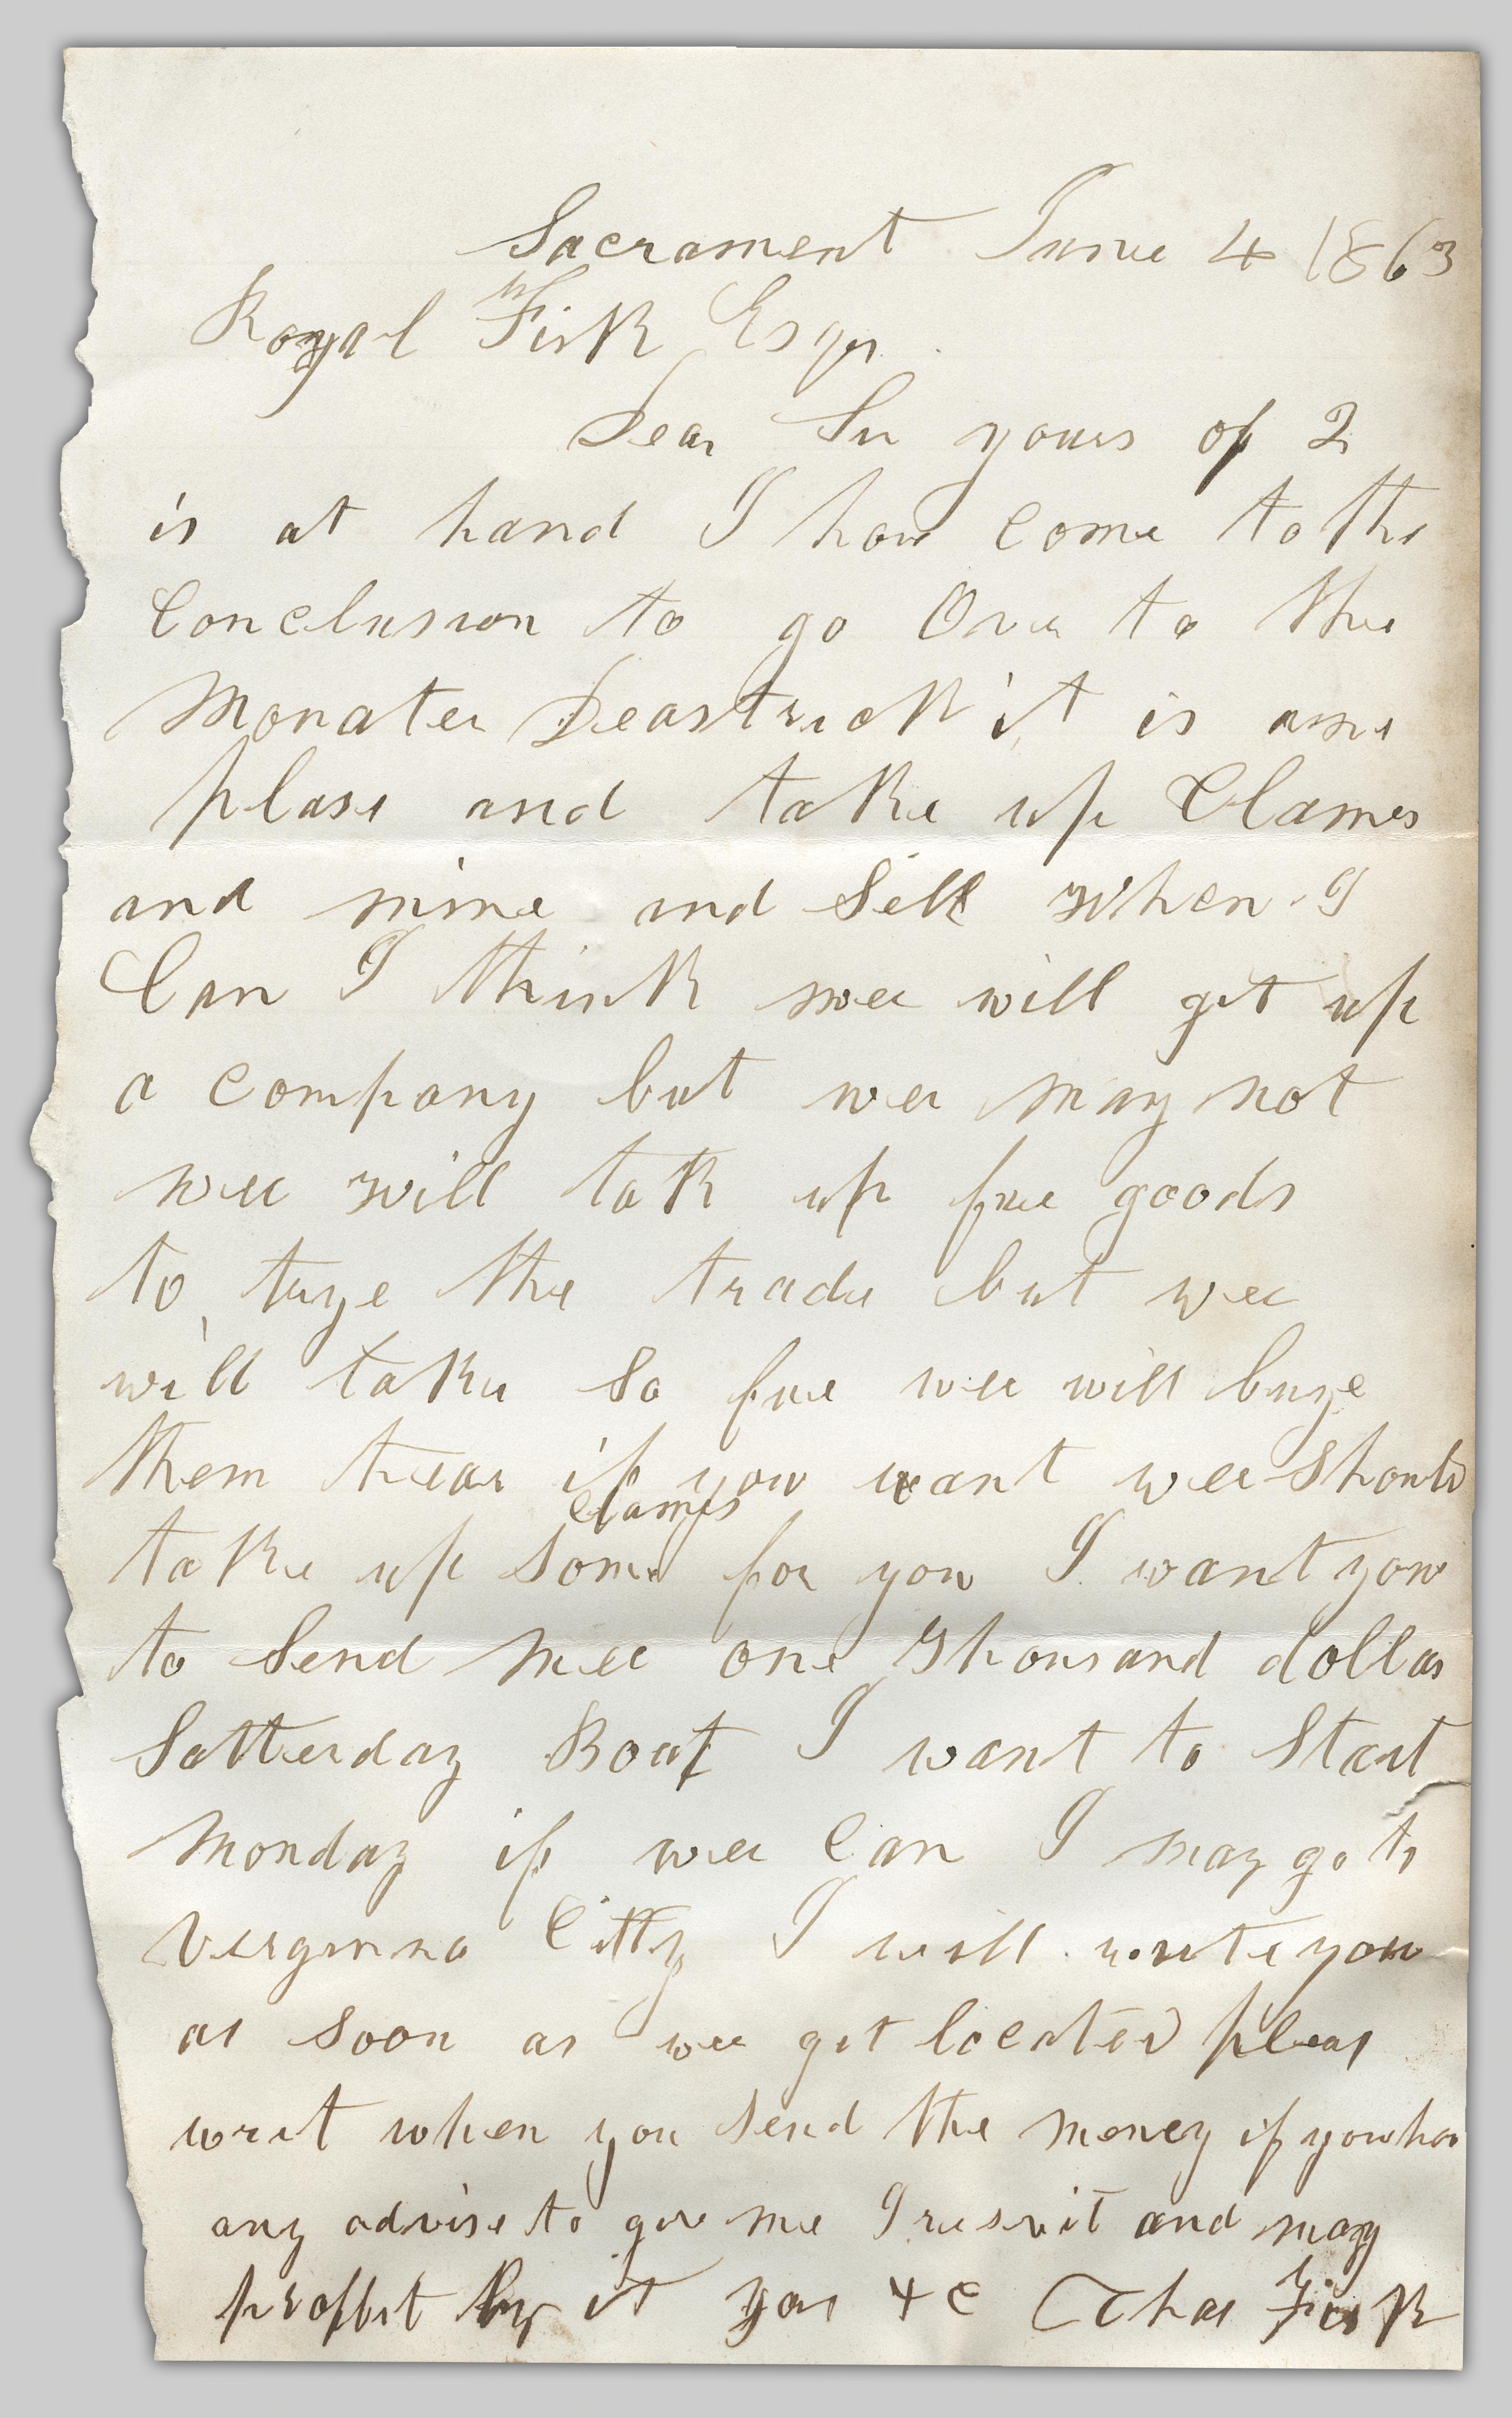 Sacrament June 4 1863
Royal Fisk Esqr
Dear Sir yours of 2
is at hand I have come to the
Conclusion to go Over to the
Monater Deastrick it is a
plase and take up Clames
and mine and Sell when I
Can I think wee will get up
a company but wee may not
wee will tak up fue goods
to trye the trade but wee
will take so fue wee will buye
them thear if you want wee should
take up some Clames for you I want you
to Send mee one Thousand dollar
Satterday Boat I want to Start
Monday if wee Can I may go to
Verginna Citty I will write you
as soon as wee get located pleas
writ when you send the money if you hav
any advise to give me I reseivit and may
proffit by it yors &c Chas Fisk